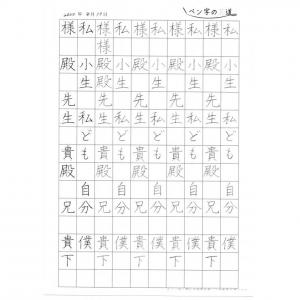 ペン字の 道
私 小生 私ども 自分 僕
様 殿 先生 貴殿 兄 貴下
私 小生 私ども 自分 僕
様 殿 先生 貴殿 兄 貴下
私 小生 私ども 自分 僕
様 殿 先生 貴殿 兄 貴下
私 小生 私ども 自分 僕
様様殿 先生 貴殿 兄 貴下
私 小生 私ども 自分 僕
様 殿 先生 貴殿 兄 貴下